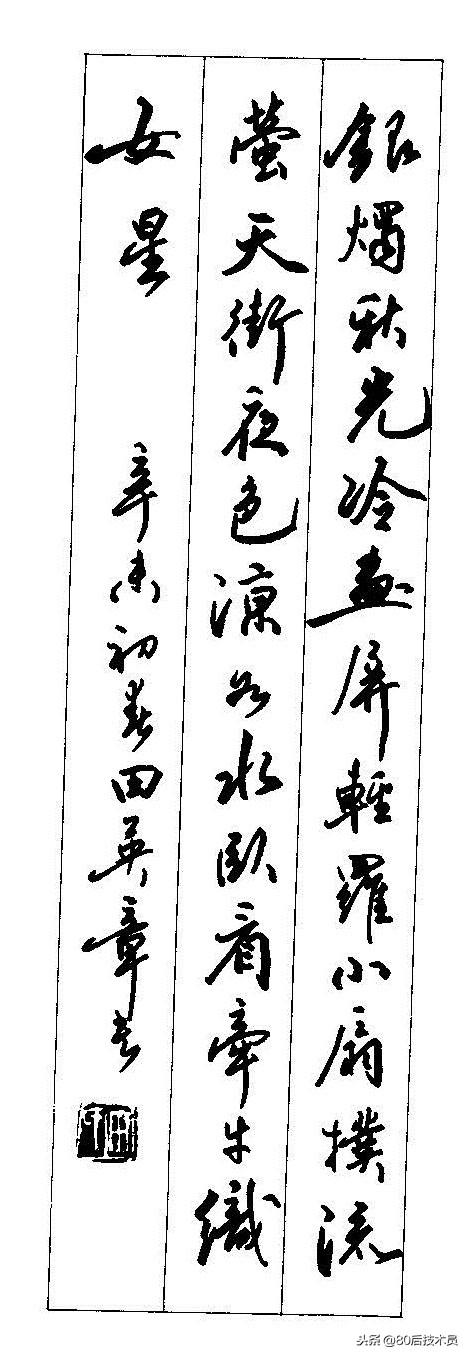 銀燭秋光冷畫屏輕羅小扇撲流
螢天街夜色涼如水臥看牽牛織
女星
辛未初春田英章書
头条 @80后技术员